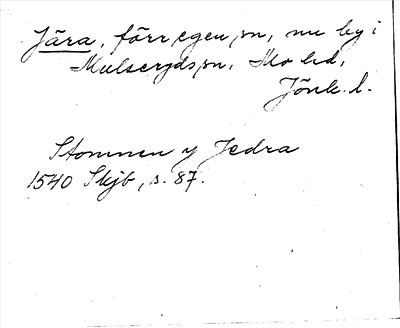 Jära, förr egen sn, nu by i
Mulseryds sn, Mo hd,
Jönk. l.
Stommen y Jedra
1540 Skjb, s. 87.